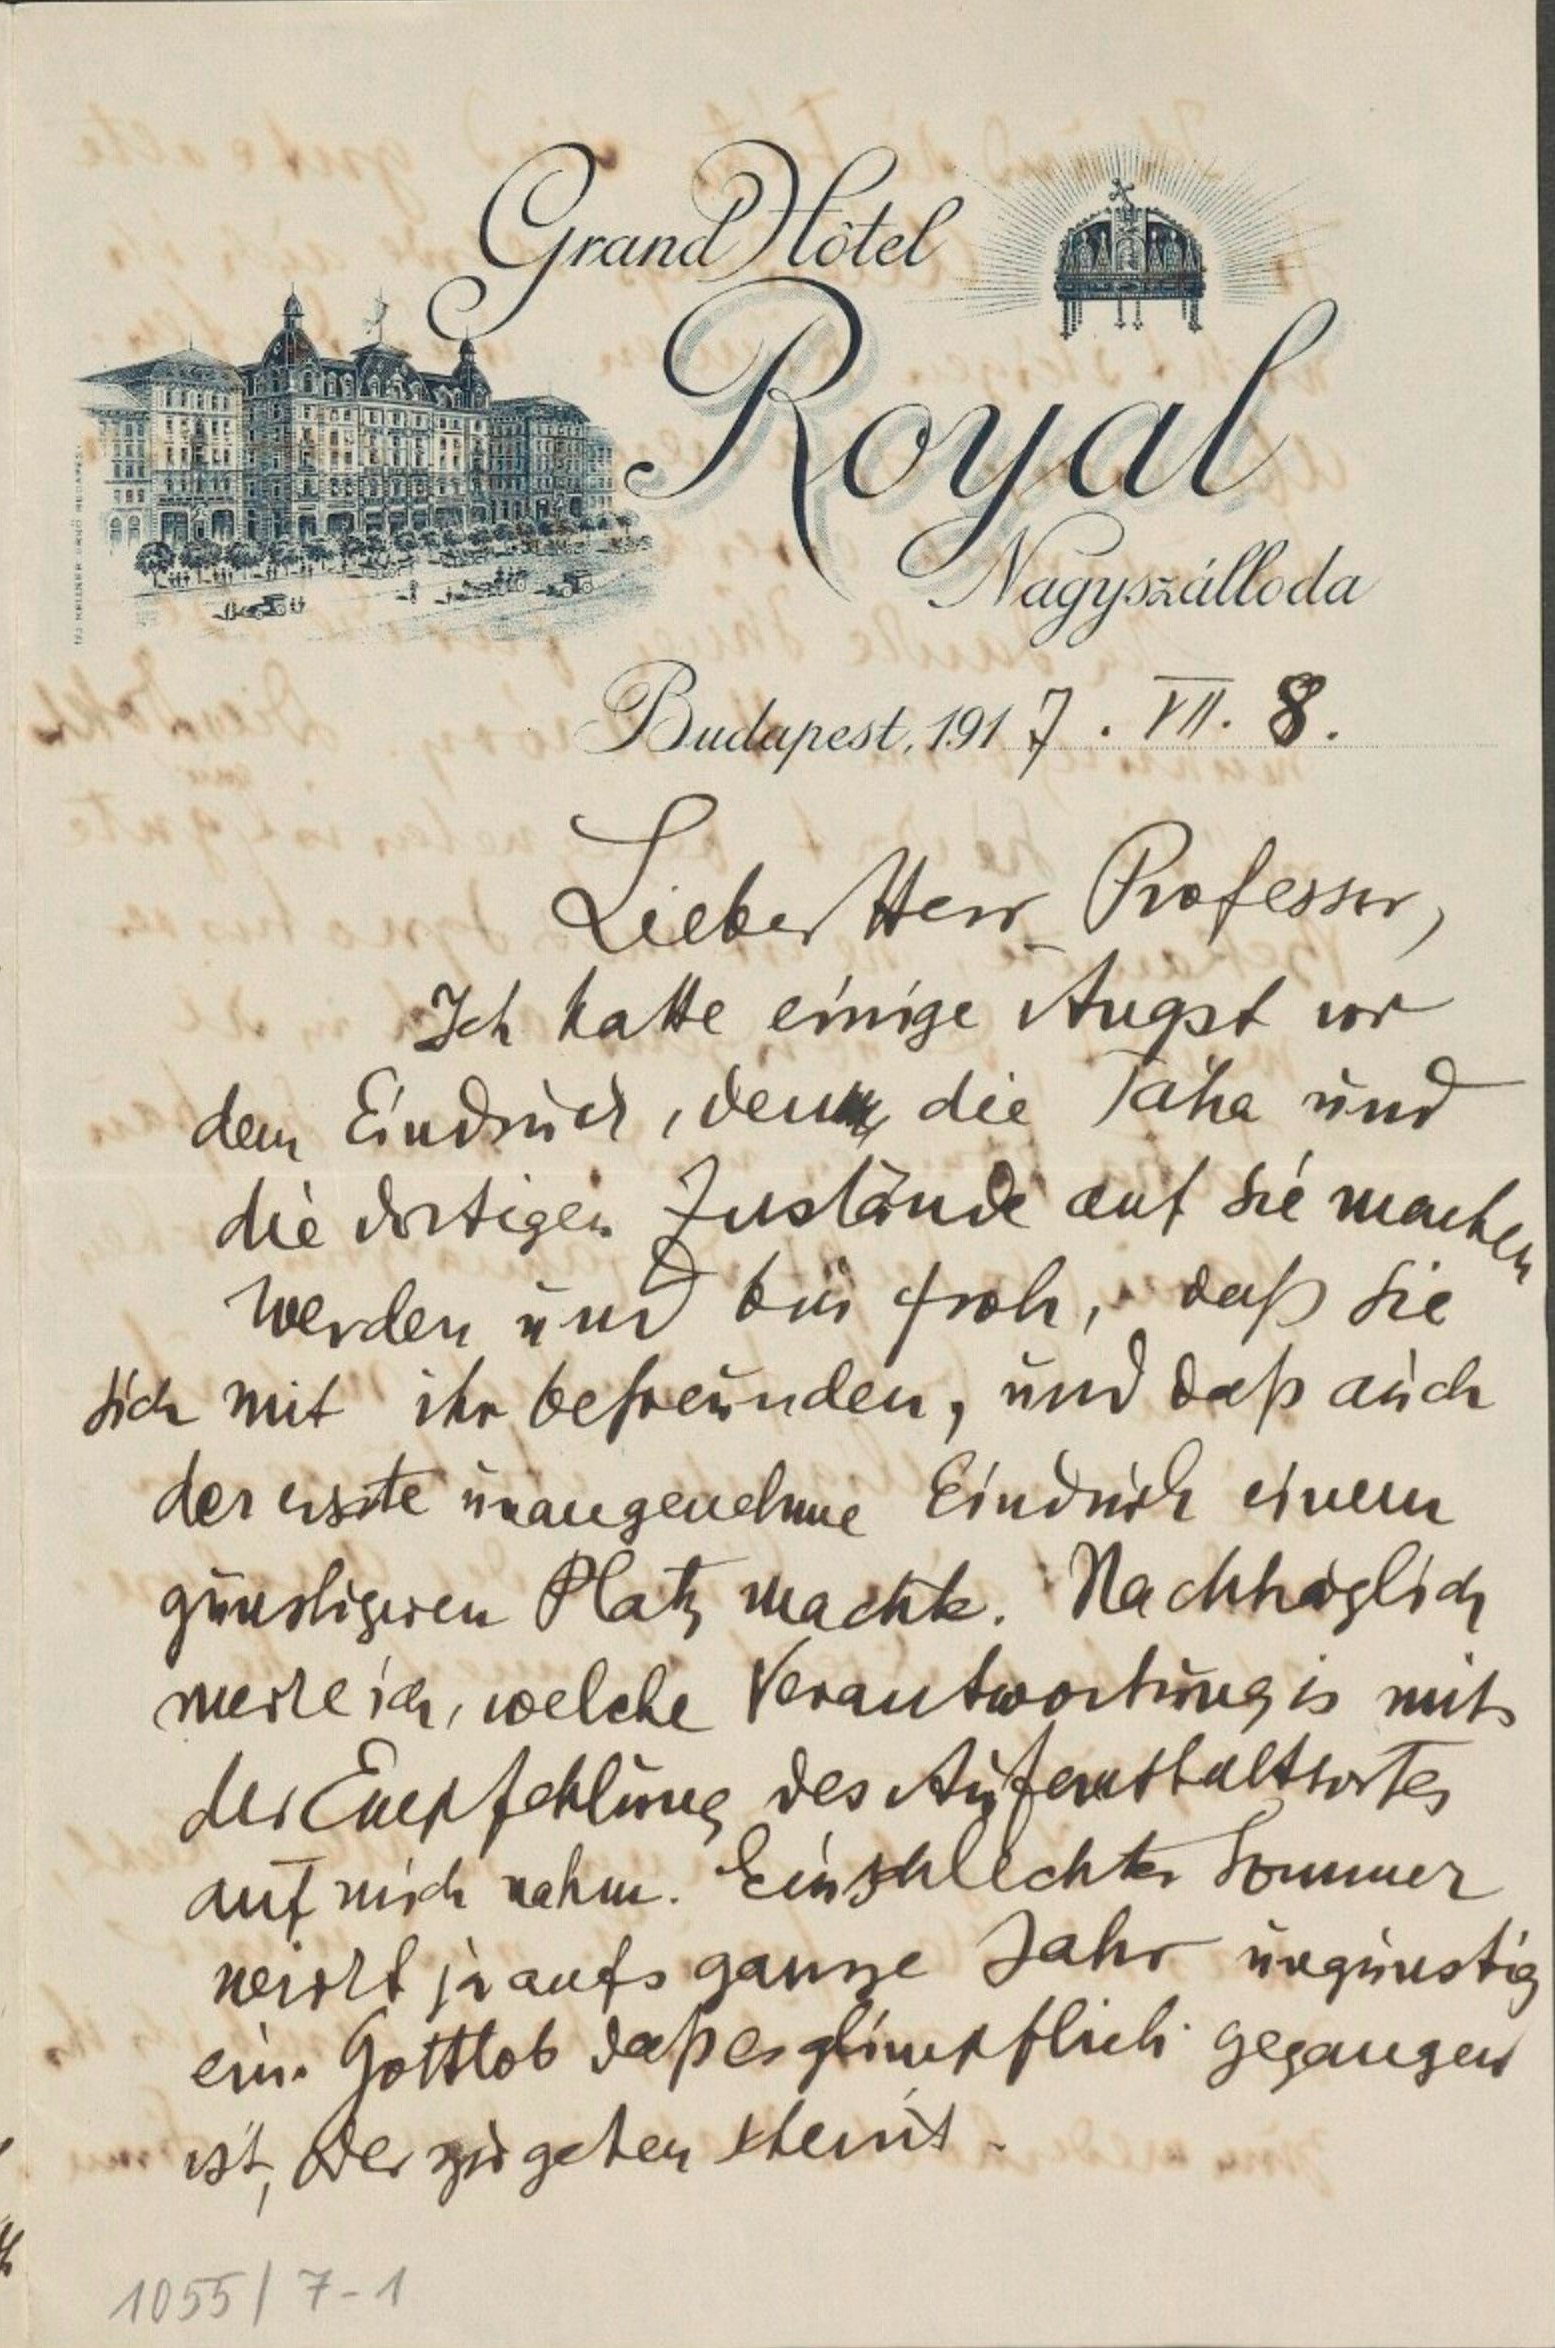 Grand Hôtel
Royal
Nagyszálloda
Budapest, 1917. VII. 8.
Lieber Herr Professor,
Ich hatte einige Angst vor
dem Eindruck, den die Tátra und
die dortigen Zustände auf Sie machen
werden und bin froh, daß Sie
sich mit ihr befreunden, und daß auch
der erste unangenehme Eindruck einem
günstigeren Platz machte. Nachträglich
merke ich, welche Verantwortung is mit
der Empfehlung des Aufenthaltsortes
auf mich nahm. Ein schlechter Sommer
wirkt ja aufs ganze Jahr ungünstig
ein. Gottlob daß es glimpflich gegangen
ist, oder zu gehen scheint.
1055/7-1